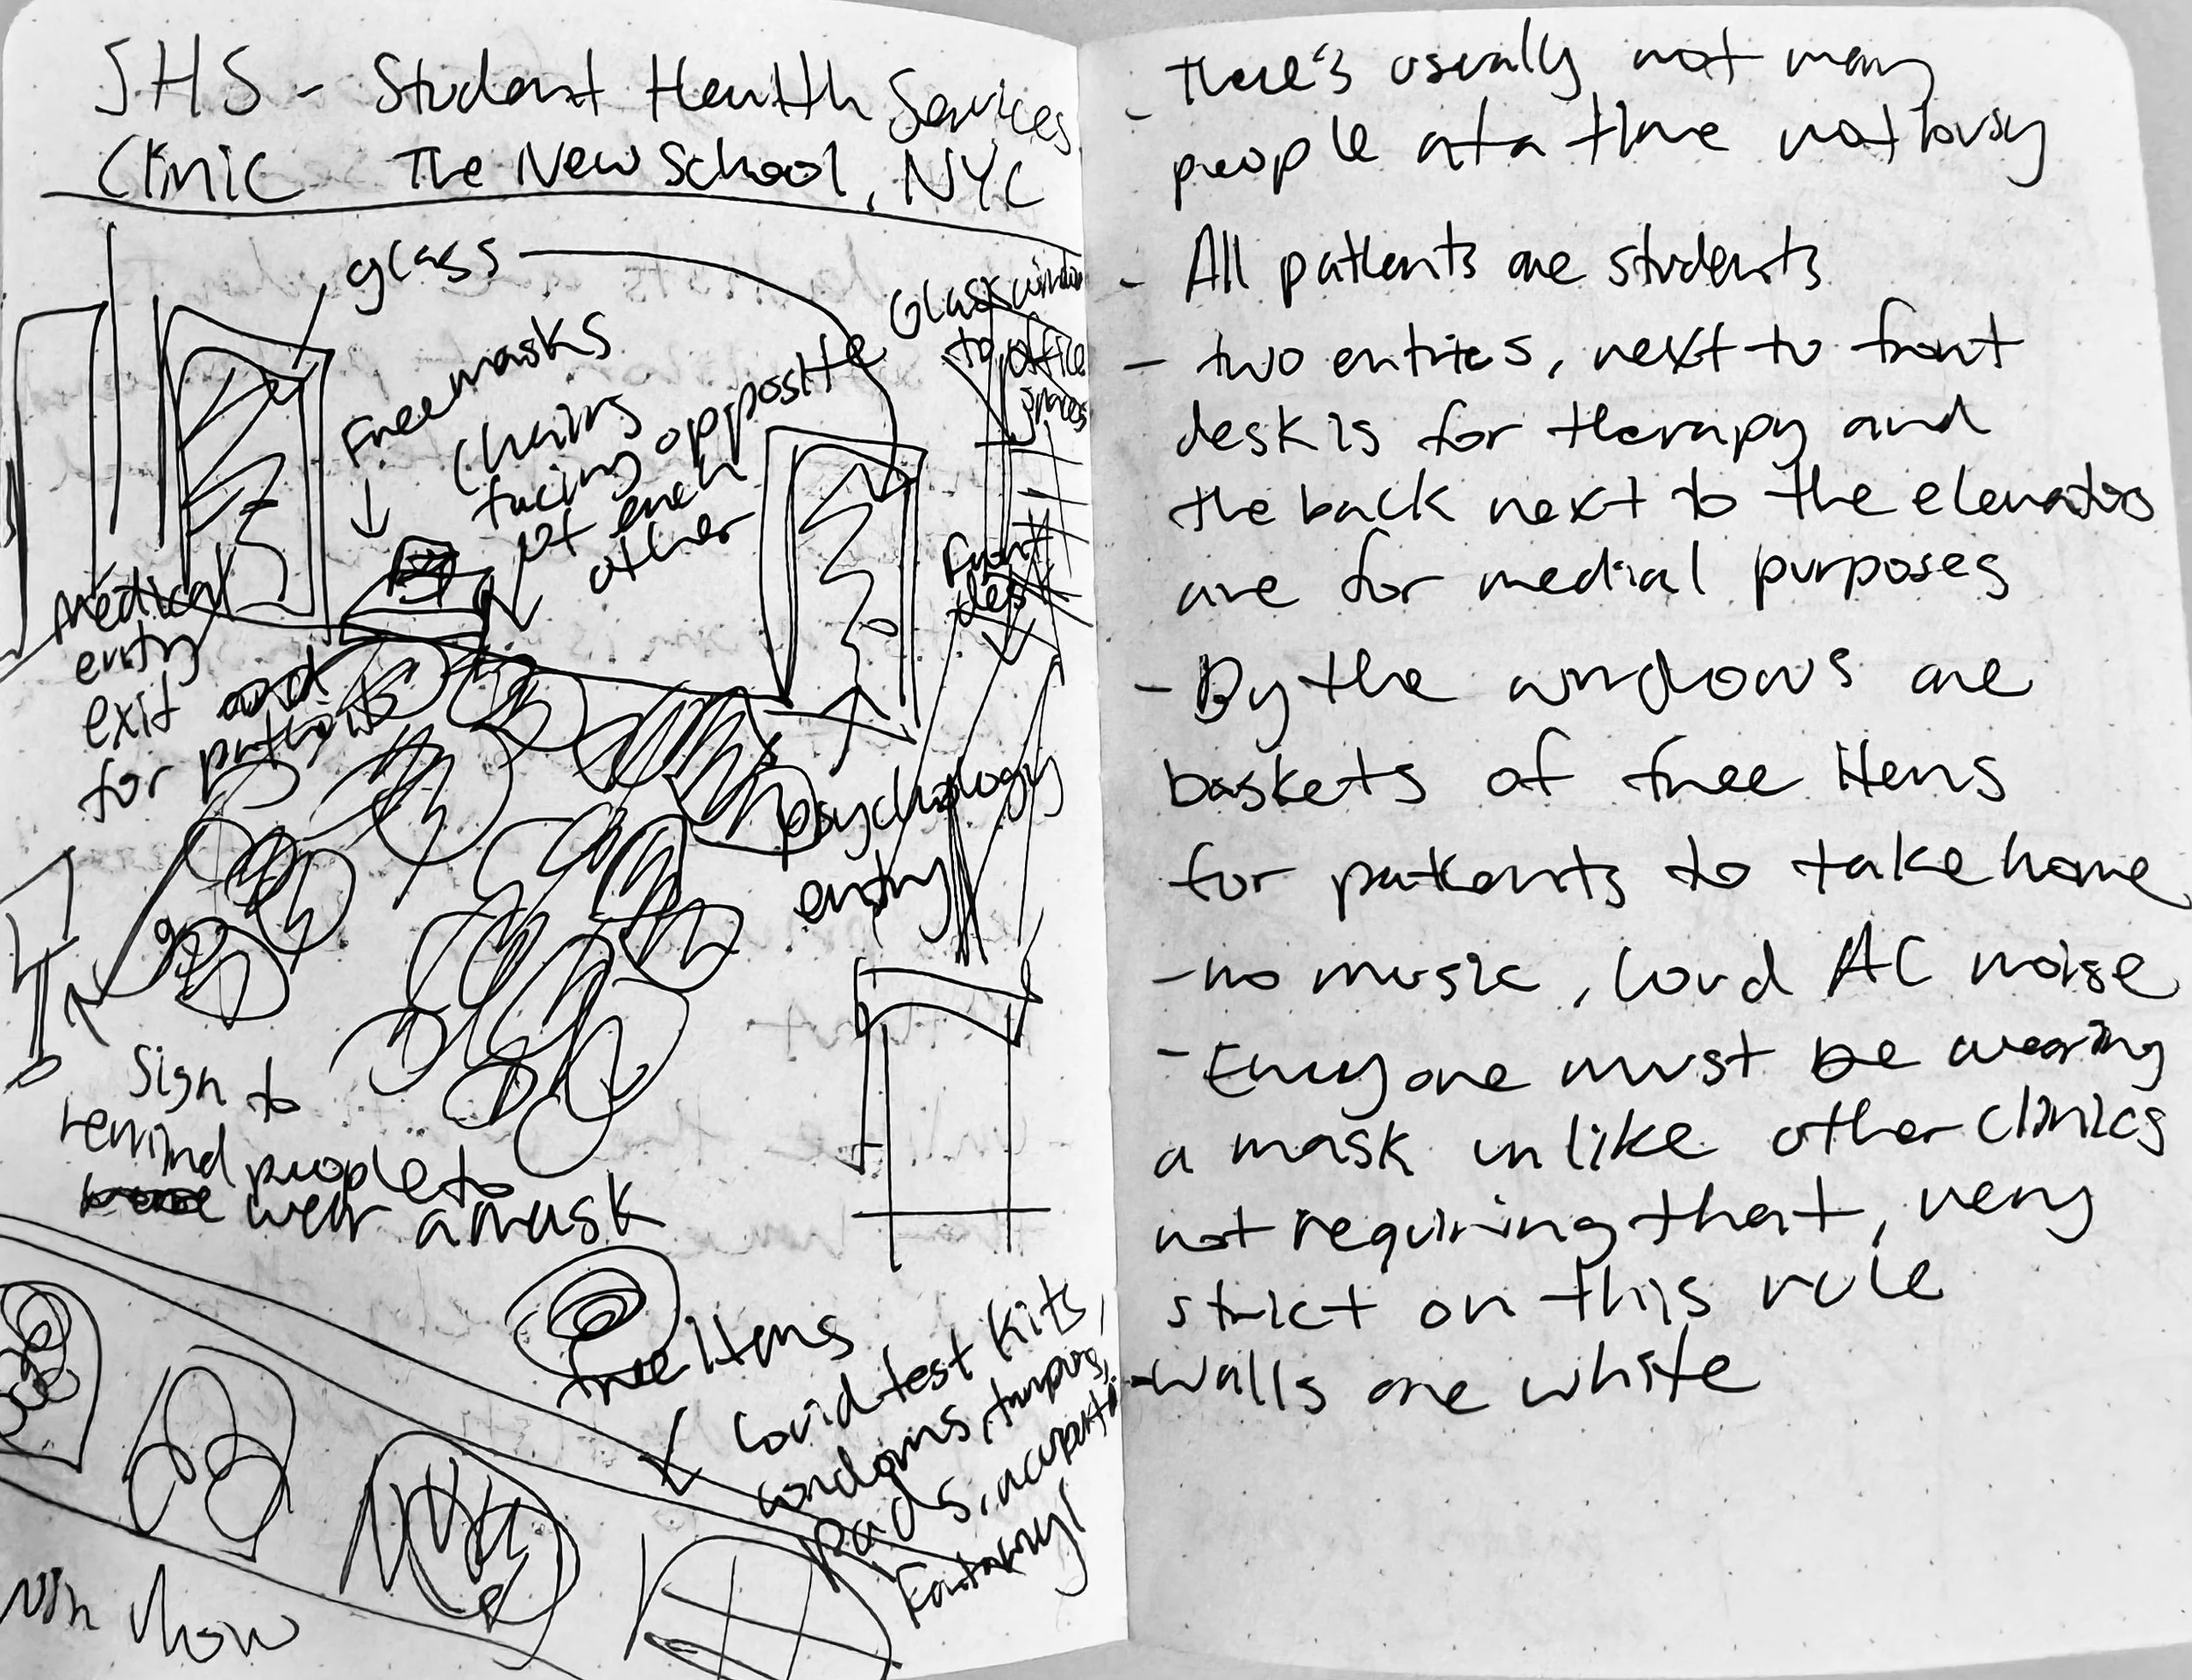 SHS - Student Health Services
Clinic The New School, NYC
glass
Free masks
Chairs
facing opposite
of each
other
Glass window
to office
spaces
Front
desk
Medical
entry
exit and
for patients
psychology
entry
Sign to
remind people to
wear a mask
free items
Covid test kits,
condoms, tampons,
pads,
- There's usually not many
people at a time not busy
- All patients are students
- two entries, next to front
desk is for therapy and
the back next to the elevators
are for medial purposes
- By the windows are
baskets of free items
for patients to take home
- no music, loud AC noise
- Everyone must be wearing
a mask unlike other clinics
not requiring that, very
strict on this rule
- walls are white